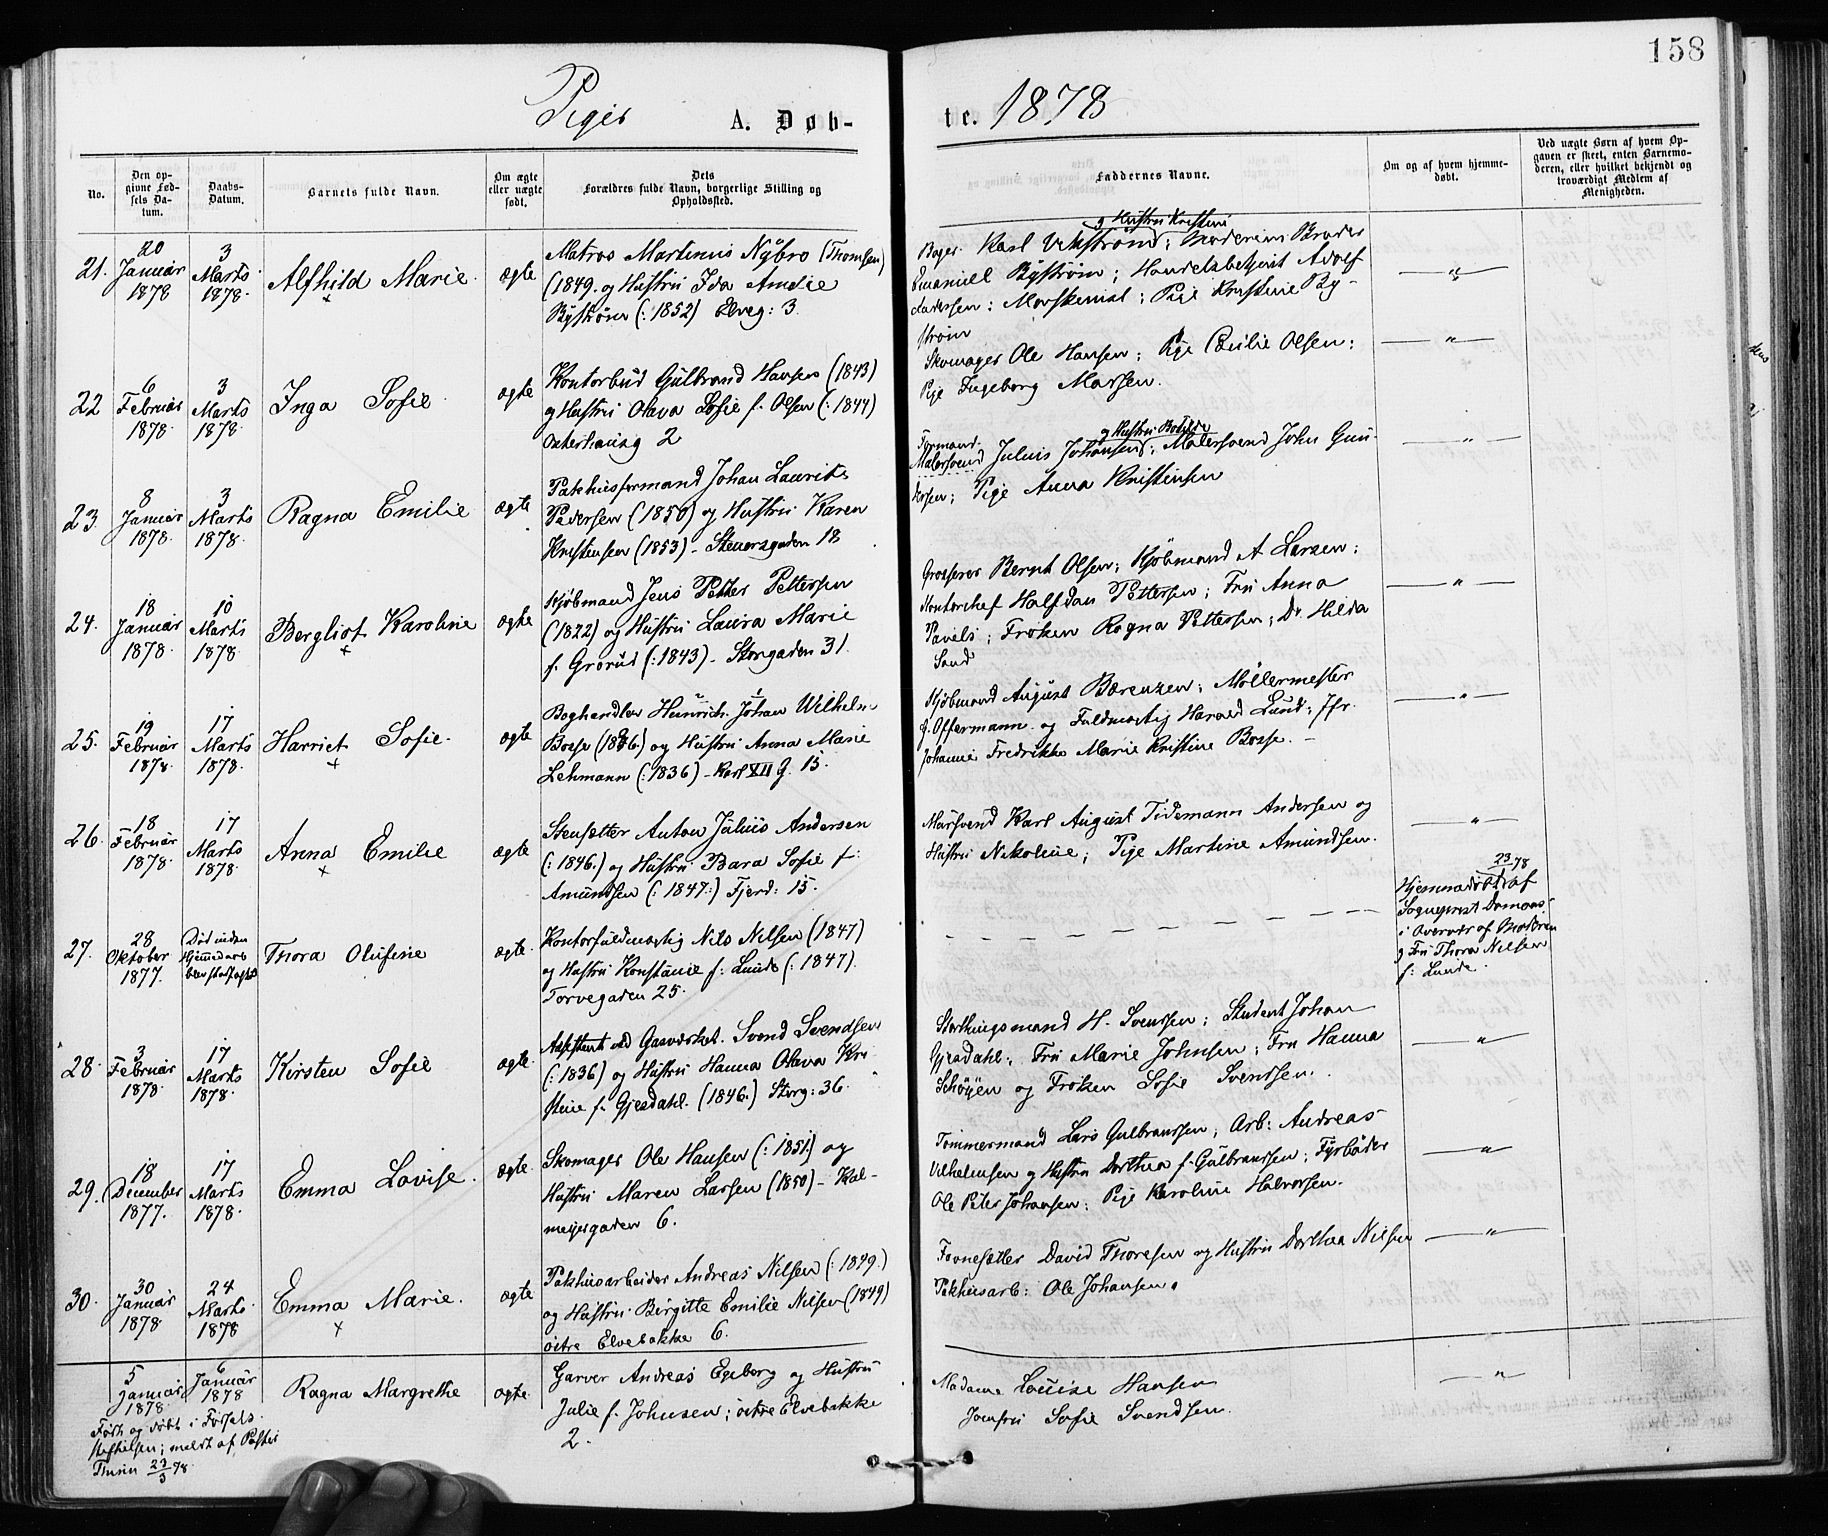 158
Piger A. Døb-
te. 1878
No.
Den op-
givne Fød-
sels Da-
tum.
Daabs-
Datum.
Barnets fulde Navn.
Om ægte
eller uægte
født.
Dets
Forældres fulde Navn, borgerlige Stilling og
Opholdssted.
Faddernes Navne.
Om og af hvem hjemme-
døbt.
Ved uægte Børn af hvem Op-
gaven er skeet, enten Barnemo-
deren, eller hvilket bekjendt og
troværdigt Medlem af
Menigheden.
21.
20
Januar
1878
3
Marts
1878.
Alfhild Marie
ægte
Matros Martinus Nybro (Thomsen)
(1849. og Hustru Ida Amalie
Byström (: 1852) Elveg: 3.
og Hustru Kristine
Bager Karl Vikström; Moderens Broder
Emanuel Byström; Handelsbetjent Adolf
Pige Kristine By-
ström
"
22
6
Februar
1878.
3
Marts
1878.
Inga Sofie
ægte
Kontorbud Gulbrand Hansen (1843)
og Hustru Olava Sofie f. Olsen (: 1844)
Osterhausg 2
Skomager Ole Hansen; Pige Cæsilie Olsen;
Pige Ingeborg Marsen.
"
23
8
Januar
1878.
3
Marts
1878.
Ragna Emilie
ægte
Pakhusformand Johan Laurits
Pedersen (1850) og Hustru Karen
Kristensen (1853) - Stenersgaden 18
og Hustru Botilde
Formand
Malersvend Julius Johansen; Malersvend John Gun-
dersen; Pige Anna Kristensen
"
24.
18
Januar
1878.
10
Marts
1878.
Bergliot Karoline
ægte
Kjöbmand Jens Petter Pettersen
(1822) og Hustru Laura Marie
f. Grorud (: 1843) - Storgaden 31.
Grosserer Bernt Olsen; Kjöbmand A Larsen;
Kontorchef Halfdan Pettersen; Fru Anna
Pavels; Fröken Ragna Pettersen; Do Hilda
Sand
"
25.
19
Februar
1878.
17
Marts
1878.
Harriet Sofie.
ægte
Boghandler Heinrich Johan Wilhelm
Bosse (1836.) og Hustru Anna Marie
Lehmann (: 1836) - Karl XII G. 15.
Kjöbmand August Bærenzen; Möllermester
G. Offermann og Fuldmægtig Harald Lund; Jfr.
Johanne Fredrikke Marie Kristine Bosse. -
"
26.
18
Februar
1878.
17
Marts
1878.
Anna Emilie
ægte
Stensætter Anton Julius Andersen
(: 1846.) og Hustru Bara Sofie f:
Amundsen (: 1847:) Fjerd: 15.
Mursvend Karl August Tidemann Andersen og
Hustru Nikoline; Pige Martine Amundsen.
"
27.
28
Oktober
1877.
Död inden
Hjemmedaab
blev stadfæstet
Thora Olufine
ægte.
Kontorfuldmægtig Nils Nilsen (1847)
og Hustru Konstanse f: Lunde (: 1847).
Torvegaden 25.
Hjemmedöbt 23/2 78 af
Sognepræst Domaas
i Overvær af Moderen
og Fru Thora Nilsen
f: Lunde.
28.
3
Februar
1878.
17
Marts
1878.
Kirsten Sofie
ægte.
Assistent ved Gasværket. Svend Svendsen
(: 1836) og Hustru Hanna Olava Kri-
stine f. Gjesdahl. (1846.) Storg: 36.
Storthingsmand H. Svensen; Student Johan
Gjesdahl; Fru Marie Johnsen; Fru Hanna
Schöyen og Fröken Sofie Svendsen.
"
29.
18
December
1877.
17
Marts
1878.
Emma Lovise.
ægte.
Skomager Ole Hansen (: 1851.) og
Hustru Maren Larsen (1850) - Kal-
meyergaden 6.
Tömmermand Lars Gulbransen; Arb: Andreas
Vilhelmsen og Hustru Dorthea f. Gulbransen; Fyrböder
Ole Peter Johansen; Pige Karoline Halvorsen.
"
30.
30
Januar
1878
24
Marts
1878
Emma Marie.
ægte
Pakhusarbeider Andreas Nilsen (: 1849.)
og Hustru Birgitte Emilie Nilsen (1849)
öitre Elvebakke 6.
Fovnesætter David Thoresen og Hustru Dorthea Nilsen
Pakhusarb: Ole Johansen.
"
5
Januar
1878.
6
Januar
1878
Ragna Margrethe
ægte.
Garver Andreas Egeberg og Hustru
Julie f. Johnsen; öitre Elvebakke
2.
Madame Louise Hansen
Jomfru Sofie Svendsen.
"
Födt og döbt i Födsels-
stiftelsen; meldt af Pastor
Thesen 23/3 78